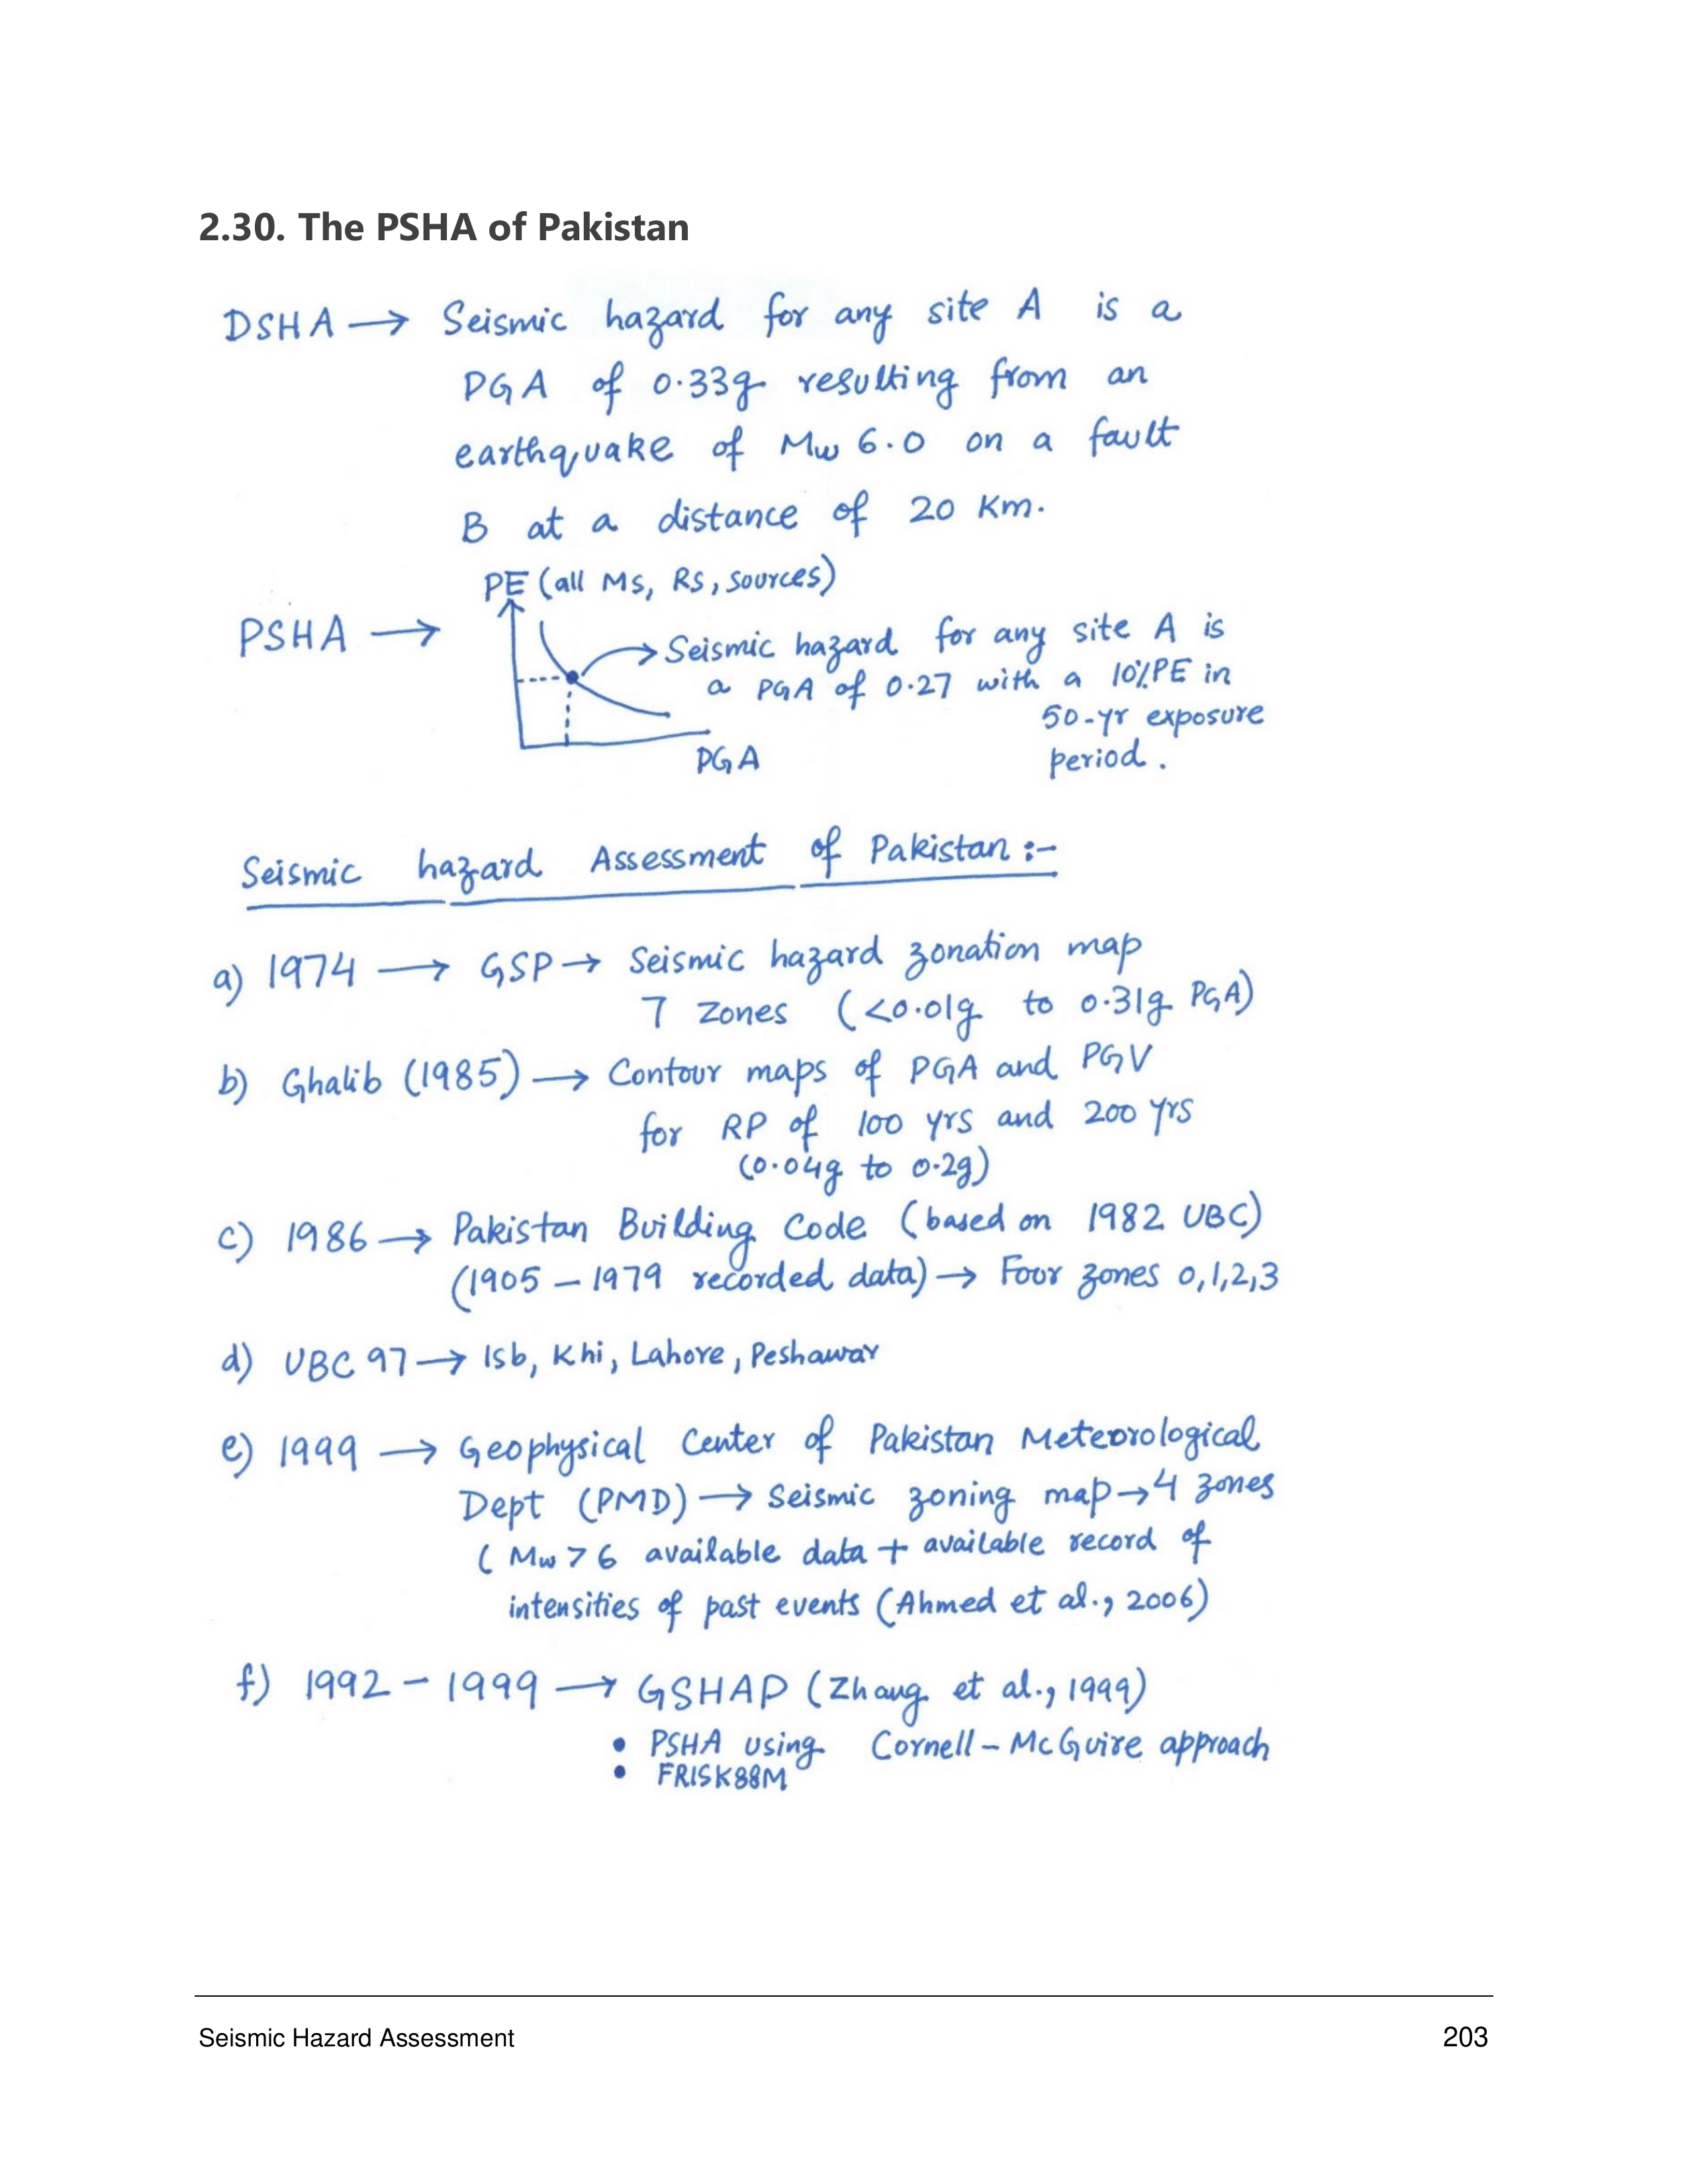 2.30. The PSHA of Pakistan
DSHA → Seismic hazard for any site A is a
PGA of 0.33g resulting from an
earthquake of Mw 6.0 on a fault
B at a distance of 20 Km.
PE (all Ms, Rs, sources)
PSHA →
→ Seismic hazard for any site A is
a PGA of 0.27 with a 10% PE in
50-yr exposure
period.
PGA
Seismic hazard Assessment of Pakistan :-
a) 1974 → GSP → Seismic hazard zonation map
7 zones (<0.01g to 0.31g PGA)
b) Ghalib (1985) → Contour maps of PGA and PGV
for RP of 100 yrs and 200 yrs
(0.04g to 0.2g)
c) 1986 → Pakistan Building Code (based on 1982 UBC)
(1905 – 1979 recorded data) → Four zones 0,1,2,3
d) UBC 97 → Isb, Khi, Lahore, Peshawar
e) 1999 → Geophysical Center of Pakistan Meteorological
Dept (PMD) → Seismic zoning map → 4 zones
(Mw > 6 available data + available record of
intensities of past events (Ahmed et al., 2006)
f) 1992 – 1999 → GSHAP (Zhang et al., 1999)
• PSHA using Cornell – McGuire approach
• FRISK88M
Seismic Hazard Assessment 203